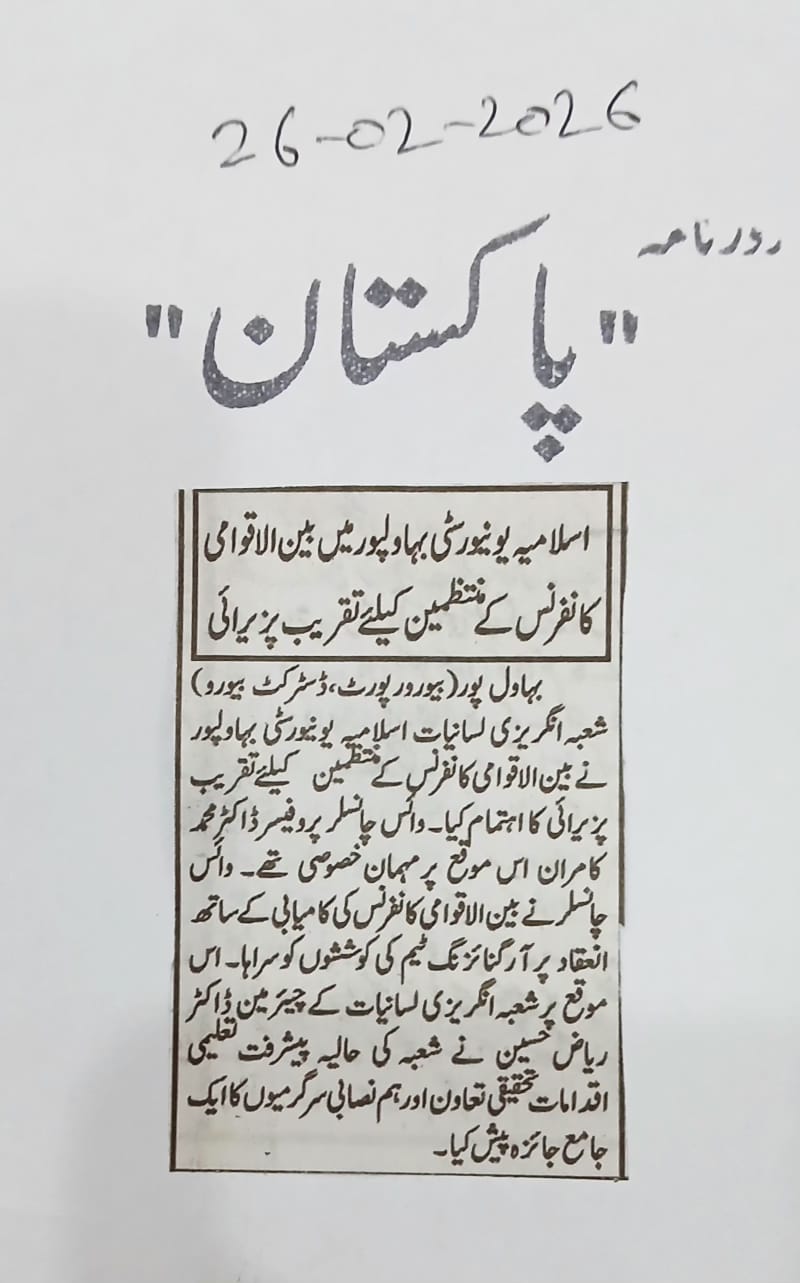 26-02-2026
روزنامہ
"پاکستان"
اسلامیہ یونیورسٹی بہاولپور میں بین الاقوامی
کانفرنس کے منتظمین کیلئے تقریب پزیرائی
بہاول پور (بیورورپورٹ، ڈسٹرکٹ بیورو)
شعبہ انگریزی لسانیات اسلامیہ یونیورسٹی بہاولپور
نے بین الاقوامی کانفرنس کے منتظمین کیلئے تقریب
پزیرائی کا اہتمام کیا۔ وائس چانسلر پروفیسر ڈاکٹر محمد
کامران اس موقع پر مہمان خصوصی تھے۔ وائس
چانسلر نے بین الاقوامی کانفرنس کی کامیابی کے ساتھ
انعقاد پر آرگنائزنگ ٹیم کی کوششوں کو سراہا۔ اس
موقع پر شعبہ انگریزی لسانیات کے چیئرمین ڈاکٹر
ریاض حسین نے شعبہ کی حالیہ پیشرفت تعلیمی
اقدامات تحقیقی تعاون اور ہم نصابی سرگرمیوں کا ایک
جامع جائزہ پیش کیا۔